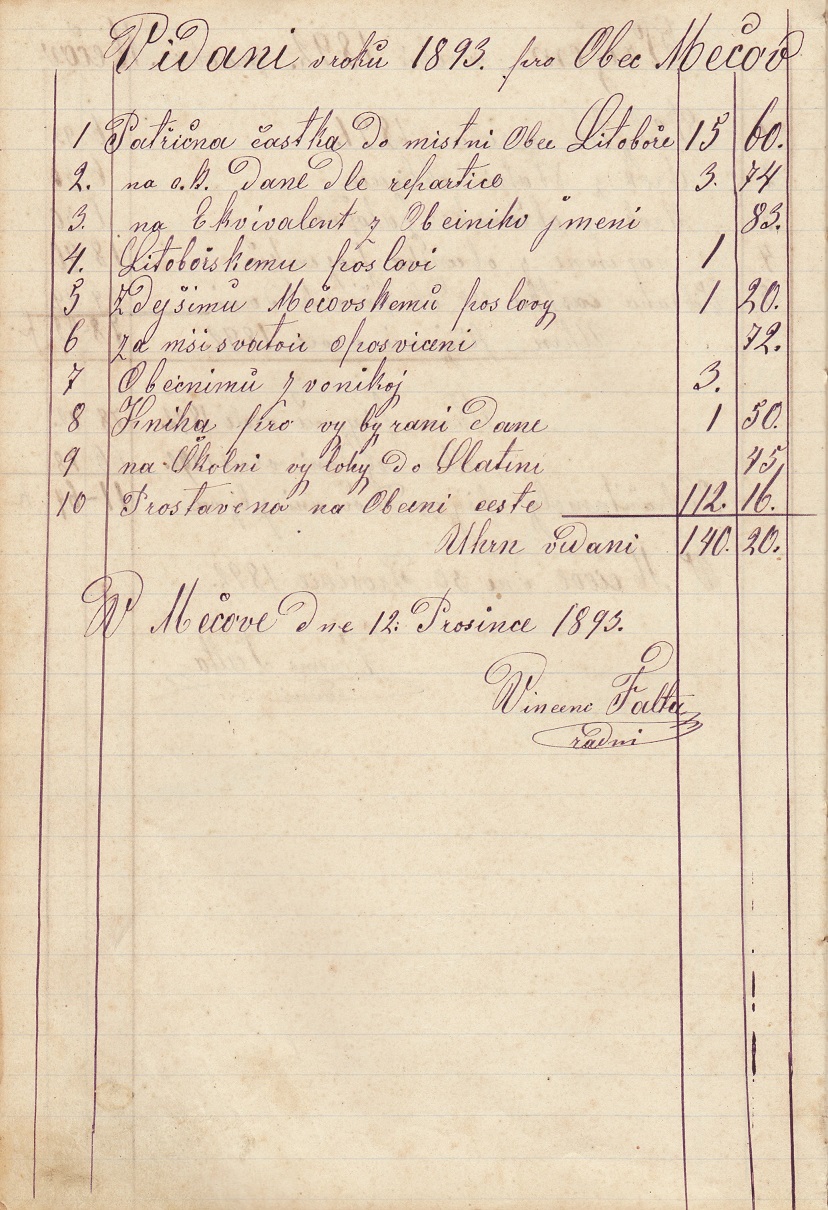 Vidani v roků 1893. pro Obec Mečov
1 Patřična častka do mistni Obce Litoboře 15 60.
2. na c.k. Dane dle repartice 3. 74
3. na Ekvivalent z Obciniho jmeni 83.
4. Litobořskemu poslovi 1
5 Zdejšimů Mečovskemů poslovy 1 20.
6 za mši svatou oposviceni 72.
7 Obecnimů zvonikoj 3.
8 Kniha pro vy by rani dane 1 50.
9 na Školni vy lohy do Slatini 45
10 Prostavena na Obecni ceste 112. 16.
Uhrn vidani 140. 20.
W Mečove dne 12: Prosince 1893.
Vincenc Falta
radni